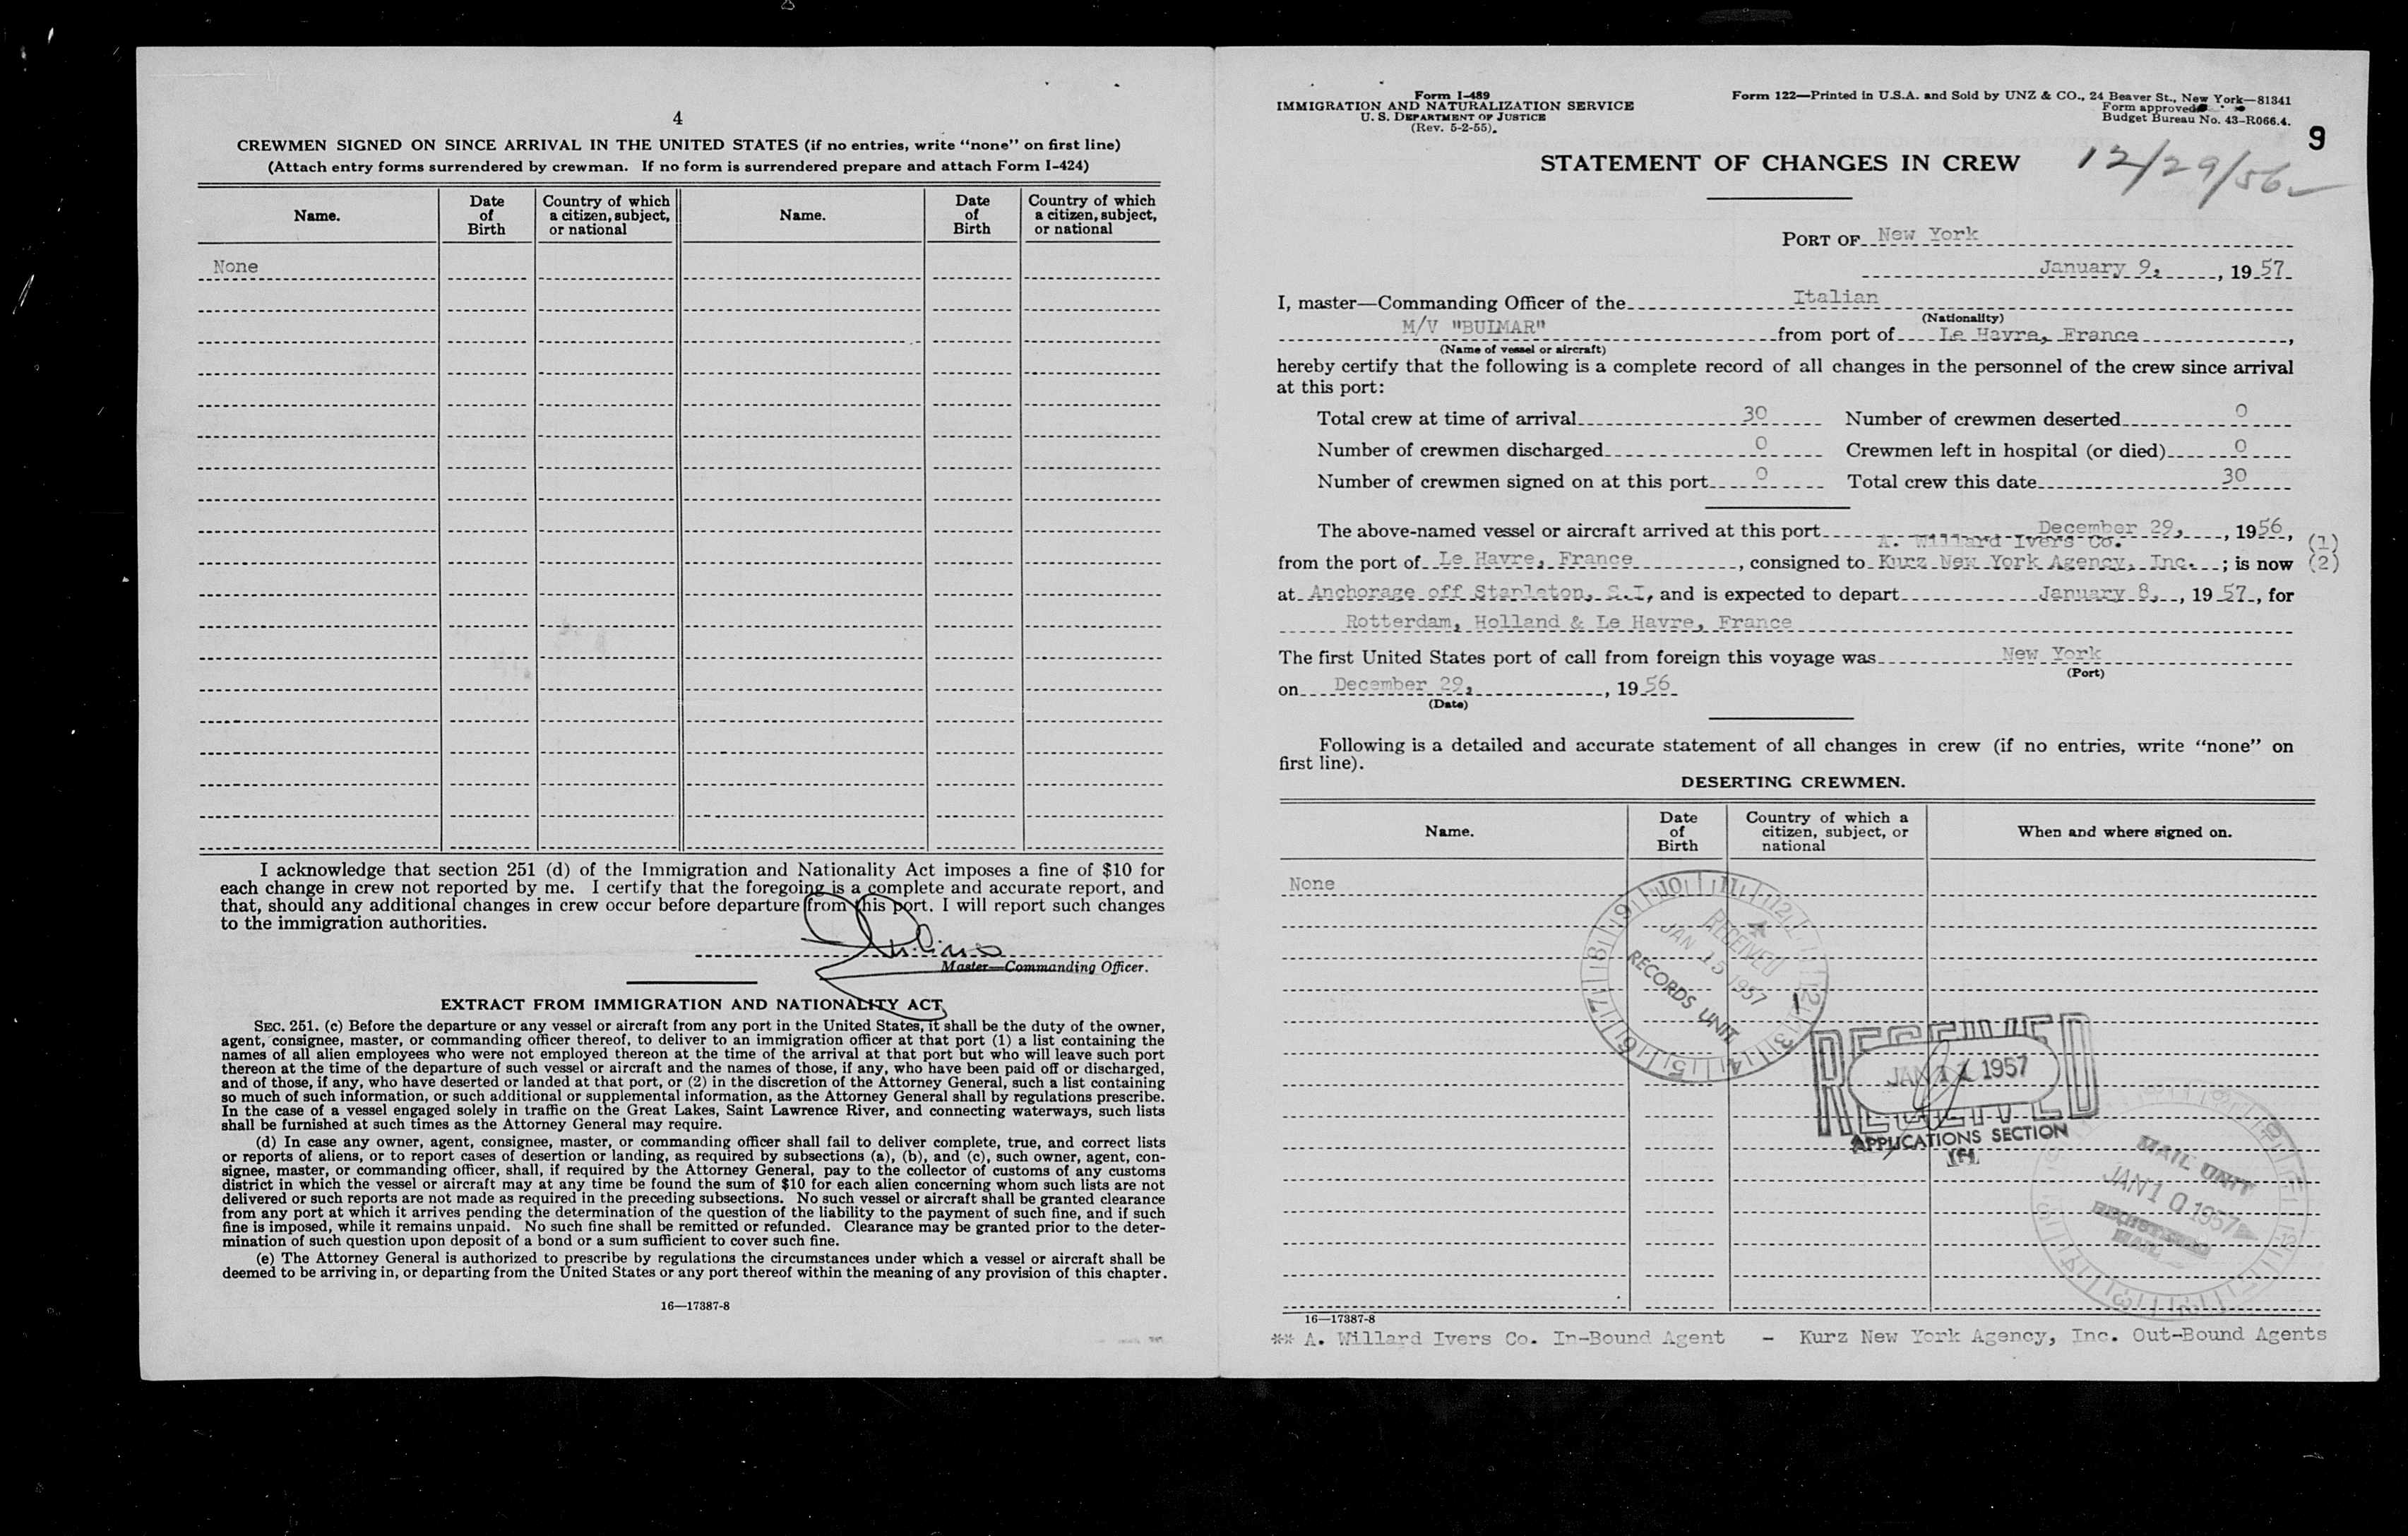 4
CREWMEN SIGNED ON SINCE ARRIVAL IN THE UNITED STATES (if no entries, write “none” on first line)
(Attach entry forms surrendered by crewman. If no form is surrendered prepare and attach Form I-424)
Name. Date of Birth Country of which a citizen, subject, or national Name. Date of Birth Country of which a citizen, subject, or national
None
I acknowledge that section 251 (d) of the Immigration and Nationality Act imposes a fine of $10 for
each change in crew not reported by me. I certify that the foregoing is a complete and accurate report, and
that, should any additional changes in crew occur before departure from this port. I will report such changes
to the immigration authorities.
Master—Commanding Officer.
EXTRACT FROM IMMIGRATION AND NATIONALITY ACT
SEC. 251. (c) Before the departure or any vessel or aircraft from any port in the United States, it shall be the duty of the owner,
agent, consignee, master, or commanding officer thereof, to deliver to an immigration officer at that port (1) a list containing the
names of all alien employees who were not employed thereon at the time of the arrival at that port but who will leave such port
thereon at the time of the departure of such vessel or aircraft and the names of those, if any, who have been paid off or discharged,
and of those, if any, who have deserted or landed at that port, or (2) in the discretion of the Attorney General, such a list containing
so much of such information, or such additional or supplemental information, as the Attorney General shall by regulations prescribe.
In the case of a vessel engaged solely in traffic on the Great Lakes, Saint Lawrence River, and connecting waterways, such lists
shall be furnished at such times as the Attorney General may require.
(d) In case any owner, agent, consignee, master, or commanding officer shall fail to deliver complete, true, and correct lists
or reports of aliens, or to report cases of desertion or landing, as required by subsections (a), (b), and (c), such owner, agent, con-
signee, master, or commanding officer, shall, if required by the Attorney General, pay to the collector of customs of any customs
district in which the vessel or aircraft may at any time be found the sum of $10 for each alien concerning whom such lists are not
delivered or such reports are not made as required in the preceding subsections. No such vessel or aircraft shall be granted clearance
from any port at which it arrives pending the determination of the question of the liability to the payment of such fine, and if such
fine is imposed, while it remains unpaid. No such fine shall be remitted or refunded. Clearance may be granted prior to the deter-
mination of such question upon deposit of a bond or a sum sufficient to cover such fine.
(e) The Attorney General is authorized to prescribe by regulations the circumstances under which a vessel or aircraft shall be
deemed to be arriving in, or departing from the United States or any port thereof within the meaning of any provision of this chapter.
16—17387-8
Form I-489
IMMIGRATION AND NATURALIZATION SERVICE
U. S. DEPARTMENT OF JUSTICE
(Rev. 5-2-55).
Form 122—Printed in U.S.A. and Sold by UNZ & CO., 24 Beaver St., New York—81341
Form approved
Budget Bureau No. 43-R066.4.
9
STATEMENT OF CHANGES IN CREW
12/29/56
PORT OF New York
January 9, , 19 57
I, master—Commanding Officer of the Italian
(Nationality)
M/V "BULMAR" from port of Le Havre, France ,
(Name of vessel or aircraft)
hereby certify that the following is a complete record of all changes in the personnel of the crew since arrival
at this port:
Total crew at time of arrival 30 Number of crewmen deserted 0
Number of crewmen discharged 0 Crewmen left in hospital (or died) 0
Number of crewmen signed on at this port 0 Total crew this date 30
The above-named vessel or aircraft arrived at this port December 29, , 19 56,
A. Willard Ivers Co. (1)
from the port of Le Havre, France , consigned to Kurz New York Agency, Inc. ; is now (2)
at Anchorage off Stapleton, S.I, and is expected to depart January 8, , 19 57 , for
Rotterdam, Holland & Le Havre, France
The first United States port of call from foreign this voyage was New York
(Port)
on December 29, , 19 56
(Date)
Following is a detailed and accurate statement of all changes in crew (if no entries, write “none” on
first line).
DESERTING CREWMEN.
Name. Date of Birth Country of which a citizen, subject, or national When and where signed on.
None
RECEIVED
JAN 15 1957
RECORDS UNIT
RECEIVED
JAN 11 1957
RECEIVED
APPLICATIONS SECTION
MAIL UNIT
JAN 10 1957
REGISTERED
MAIL
16—17387-8
** A. Willard Ivers Co. In-Bound Agent - Kurz New York Agency, Inc. Out-Bound Agents